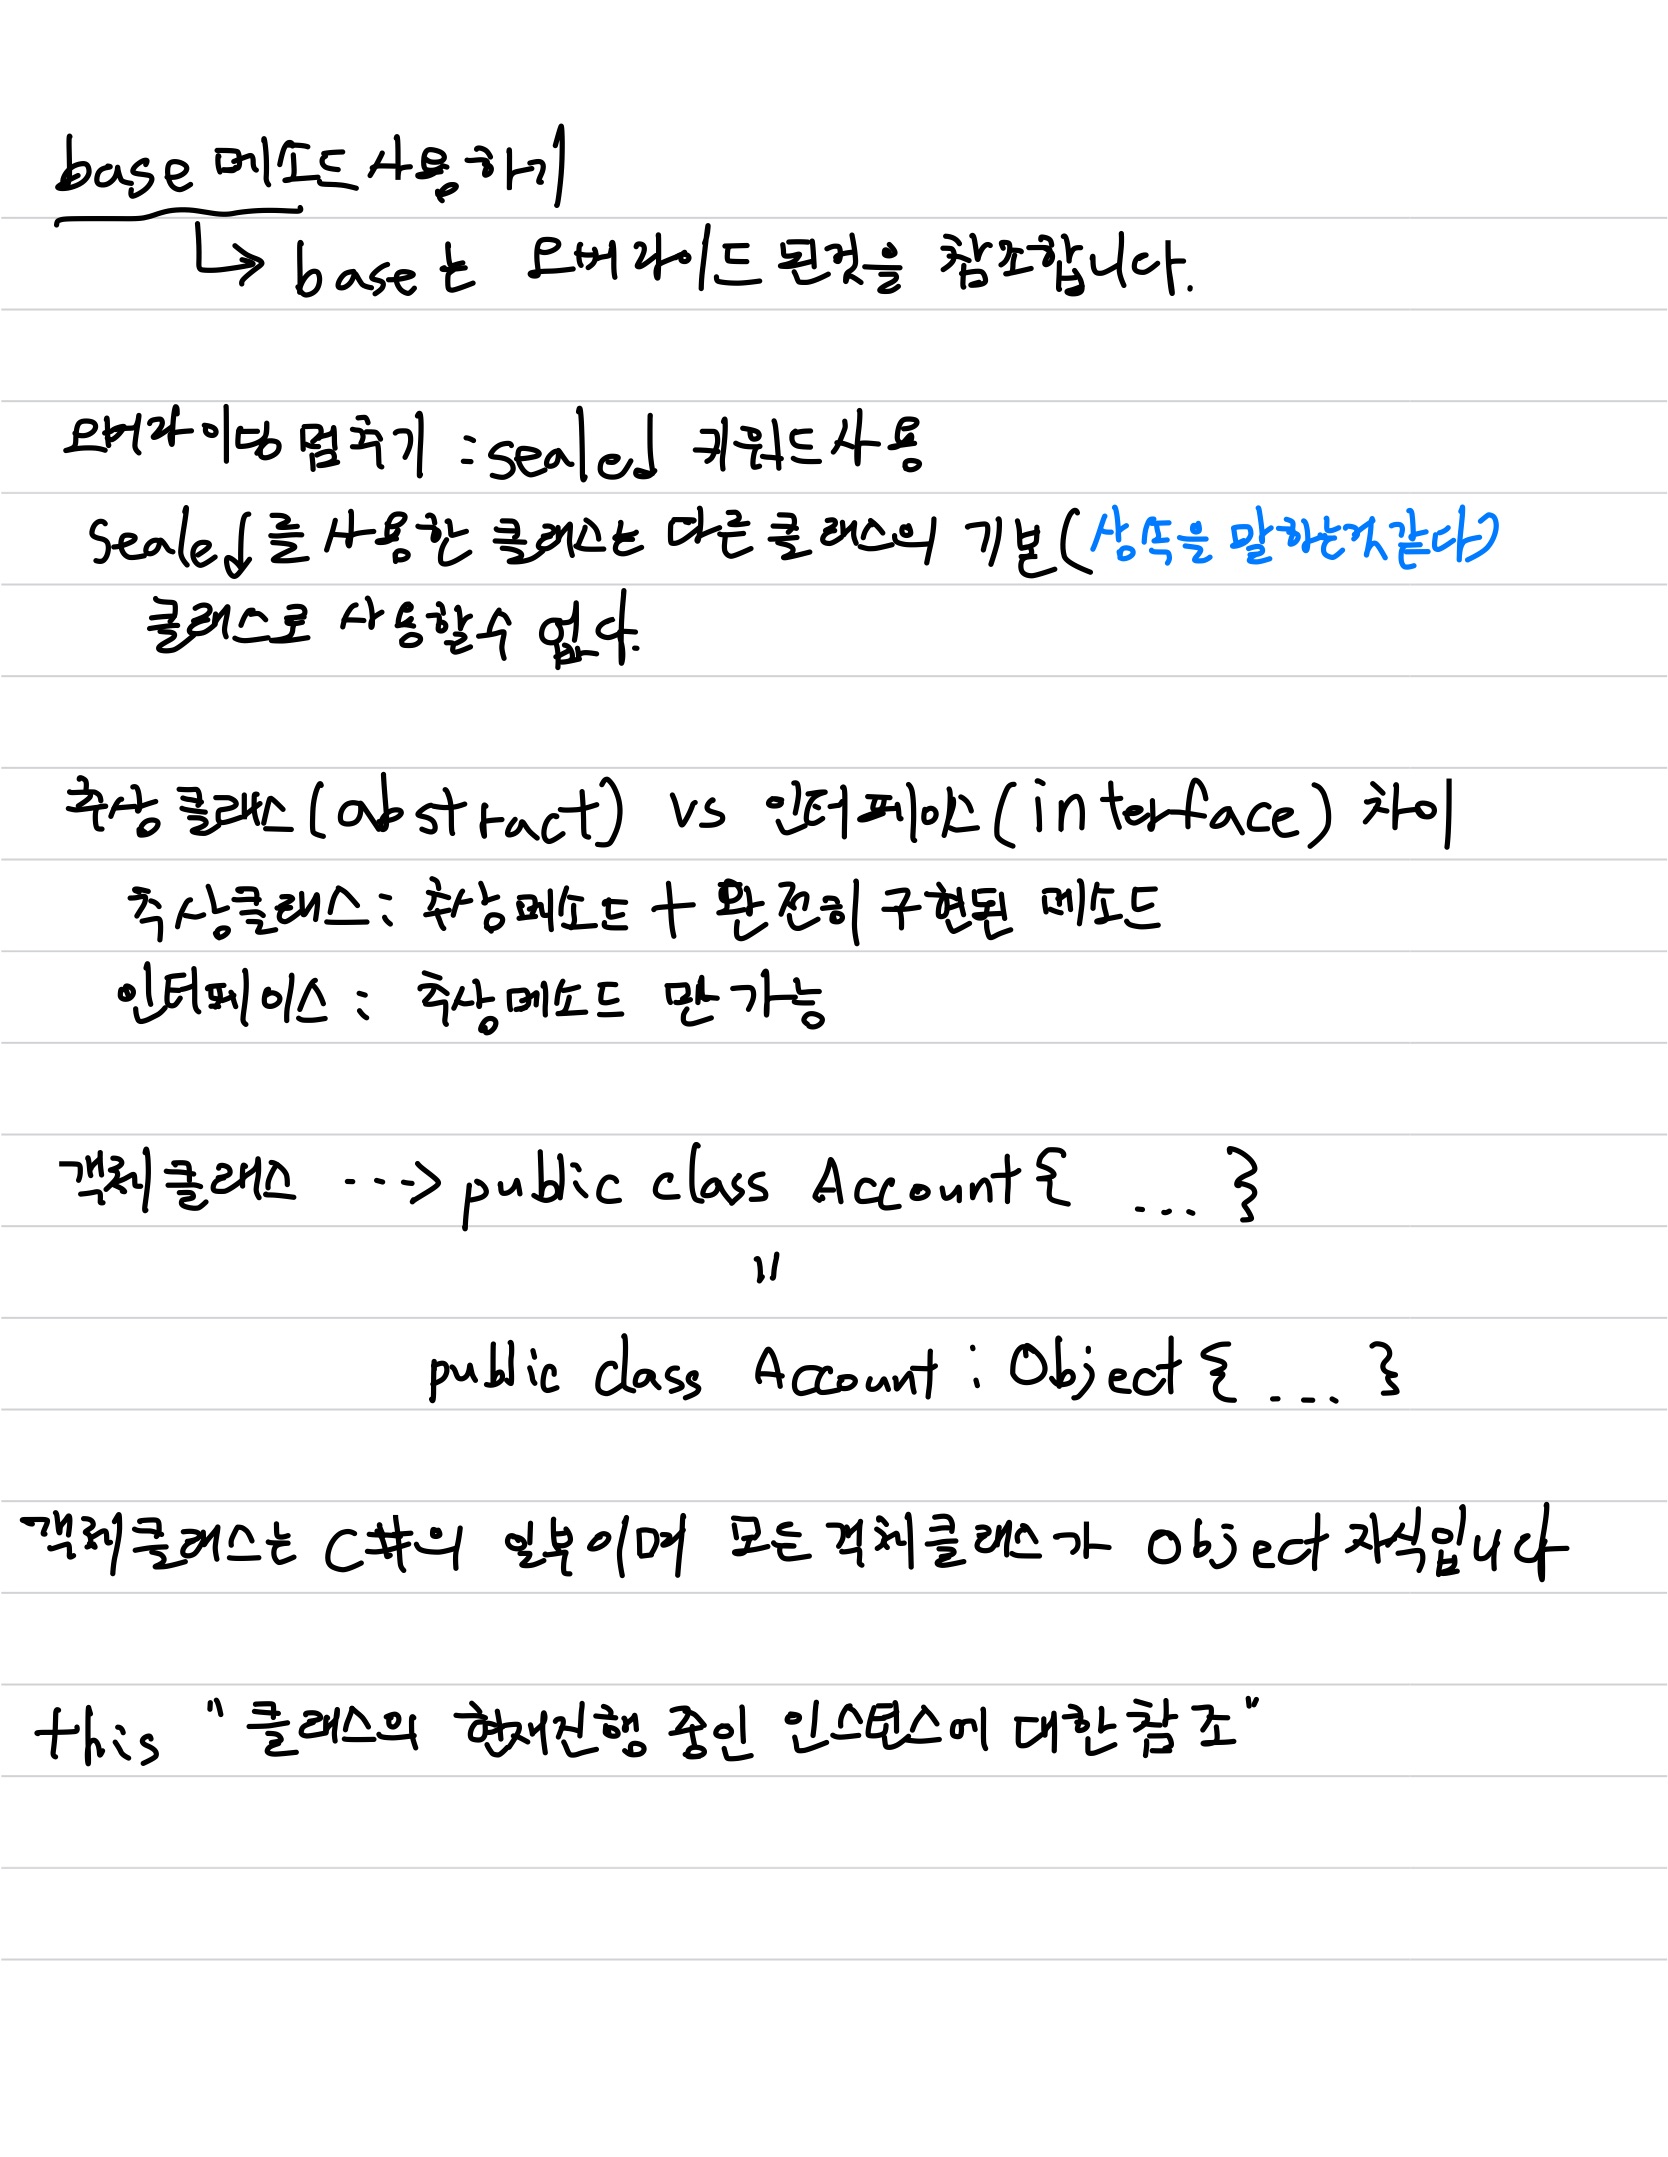 base 메소드 사용하기
↳ base는 오버라이드 된것을 참조합니다.
오버라이딩 멈추기 : sealed 키워드 사용
sealed를 사용한 클래스는 다른 클래스의 기본(상속을 말하는것 같다)
클래스로 사용할수 없다.
추상 클래스(abstract) vs 인터페이스(interface) 차이
추상클래스: 추상메소드 + 완전히 구현된 메소드
인터페이스 : 추상메소드 만 가능
객체 클래스 ---> public class Account{ ... }
"
public class Account : Object{ .... }
객체클래스는 C#의 일부이며 모든 객체클래스가 Object 자식입니다
this "클래스의 현재진행 중인 인스턴스에 대한 참조"